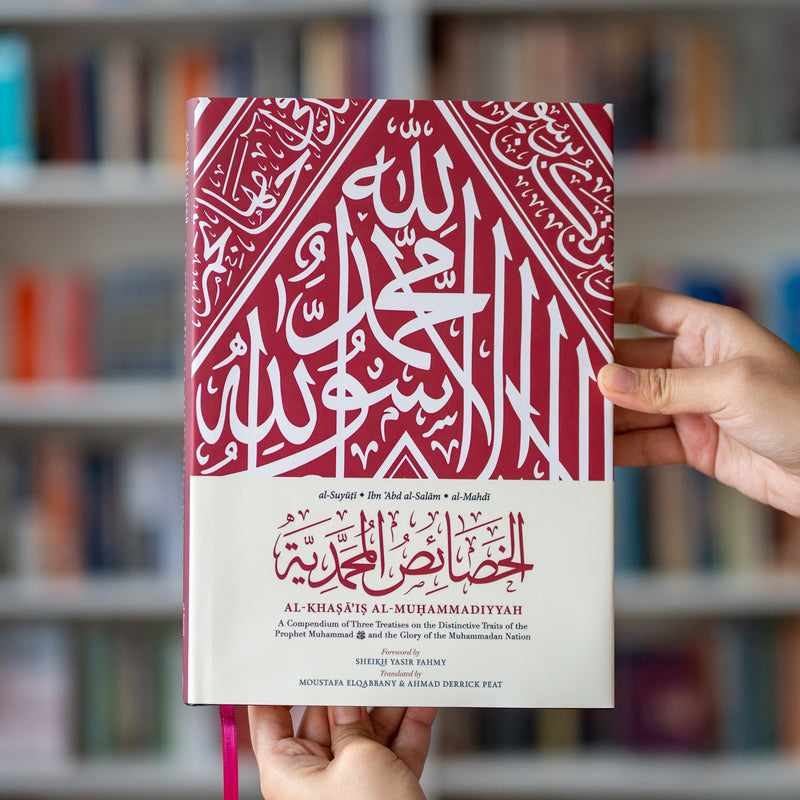 لا إله إلا الله محمد رسول الله
al-Suyūṭī • Ibn ʿAbd al-Salām • al-Mahdī
الخَصَائِصُ المُحَمَّدِيَّة
AL-KHAṢĀʾIṢ AL-MUḤAMMADIYYAH
A Compendium of Three Treatises on the Distinctive Traits of the
Prophet Muhammad ﷺ and the Glory of the Muhammadan Nation
Foreword by
SHEIKH YASIR FAHMY
Translated by
MOUSTAFA ELQABBANY & AHMAD DERRICK PEAT